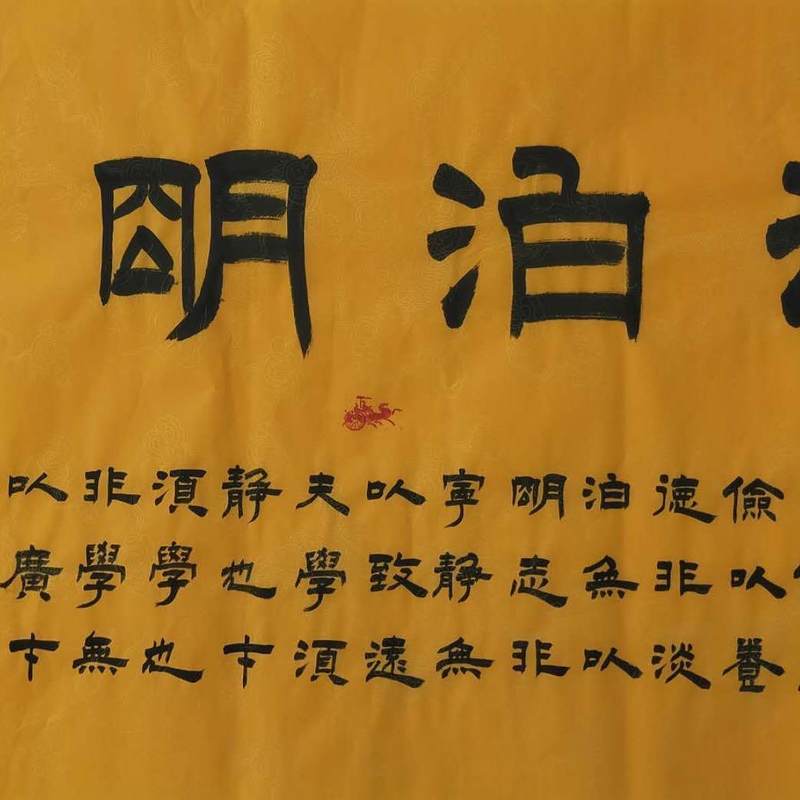 泊明
儉以養
德非淡
泊無以
明志非
寧静無
以致遠
夫學須
静也才
須學也
非學無
以廣才